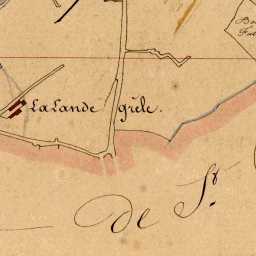 La Lande grêle.
de St.